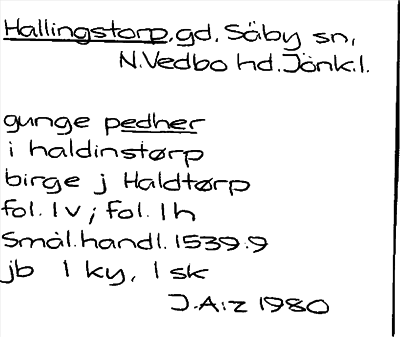 Hallingstorp, gd, Säby sn,
N.Vedbo hd. Jönk.l.
gunge pedher
i haldinstørp
birge j Haldtørp
fol. 1 v ; fol. 1 h
Smål. handl. 1539:9
jb 1 ky, 1 sk
J.A:z 1980